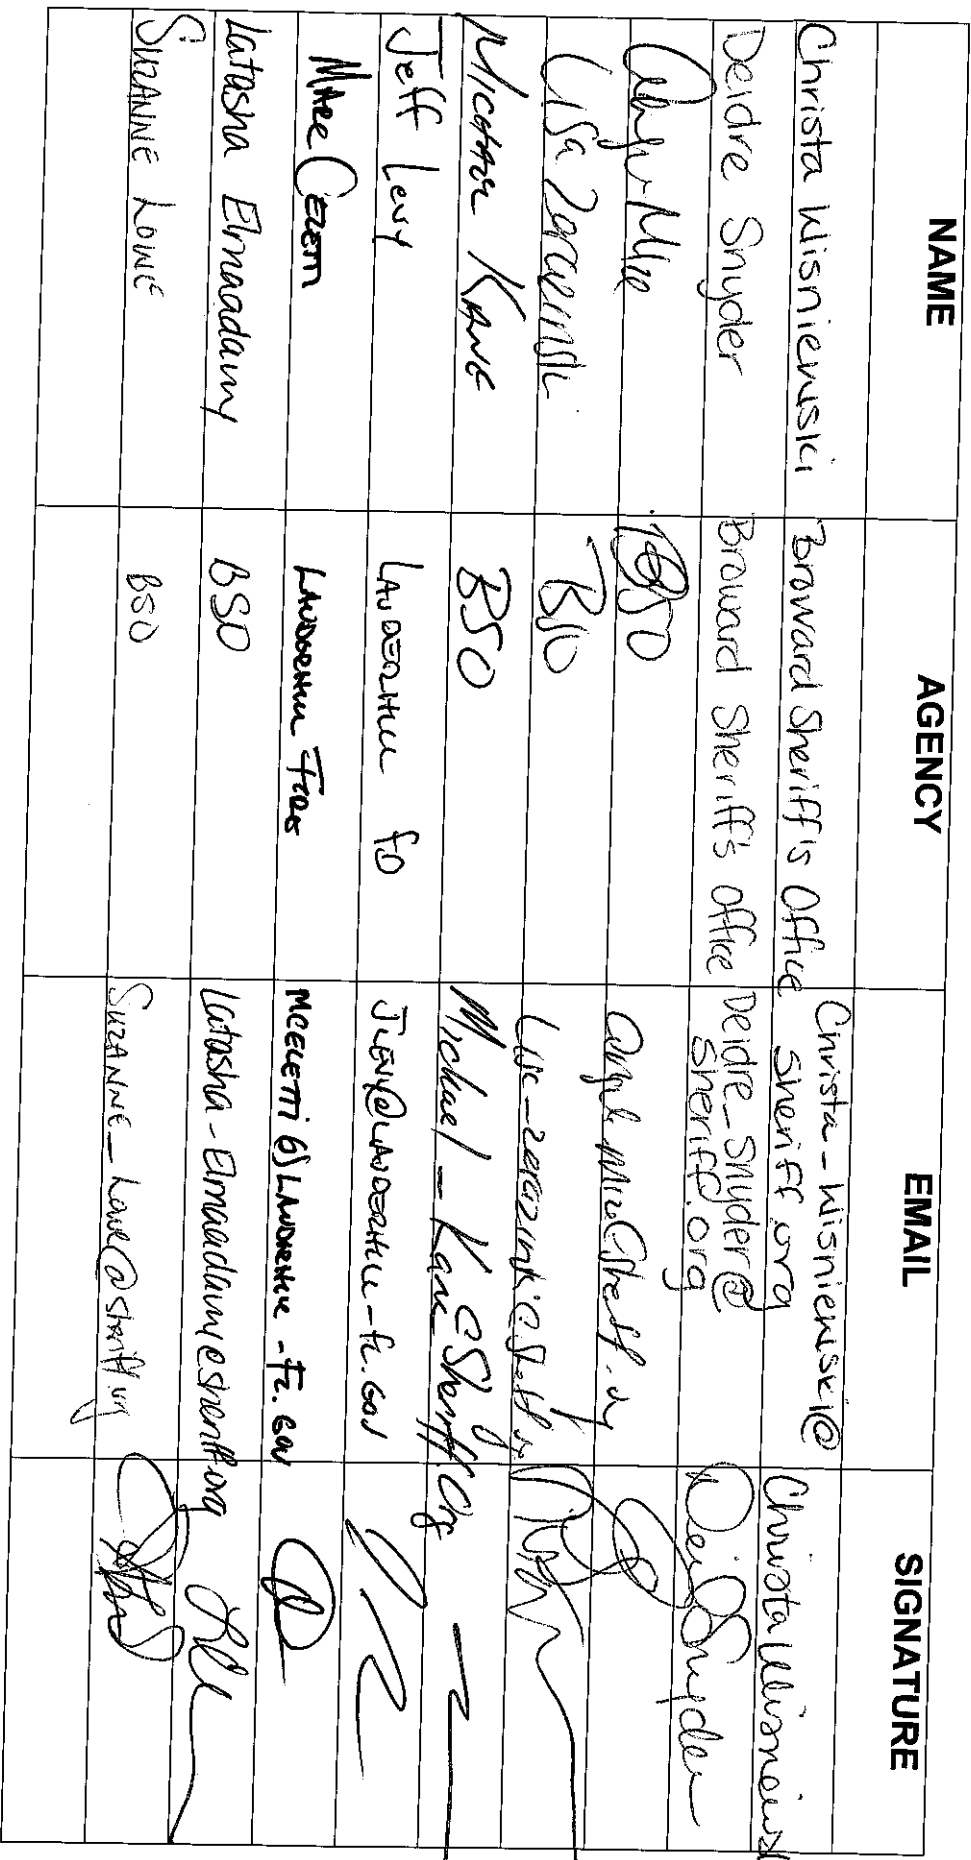 NAME AGENCY EMAIL SIGNATURE
Christa Wisniewski Broward Sheriff's Office Christa-Wisniewski@
sheriff.org Christa Wisniewski
Deidre Snyder Broward Sheriff's office Deidre_Snyder@
sheriff.org Dei Snyder
Angela Mize BSO Angela Mize@sheriff.org
Lisa BSO
Michael Kane BSO Michael-Kane@Sheriff.Org
Jeff Levy LAUDERHILL FD JLEVY@LAUDERHILL-FL.GOV
Marc Celetti LAUDERHILL FIRE MCELETTI@LAUDERHILL-FL.GOV
Latasha Elmaadawy BSO Latasha-Elmaadawy@sheriff.org
SUZANNE LOWE BSO SUZANNE_Lowe@sheriff.org